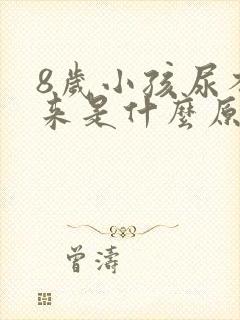 8歲小孩尿
來是什麼原
曾濤